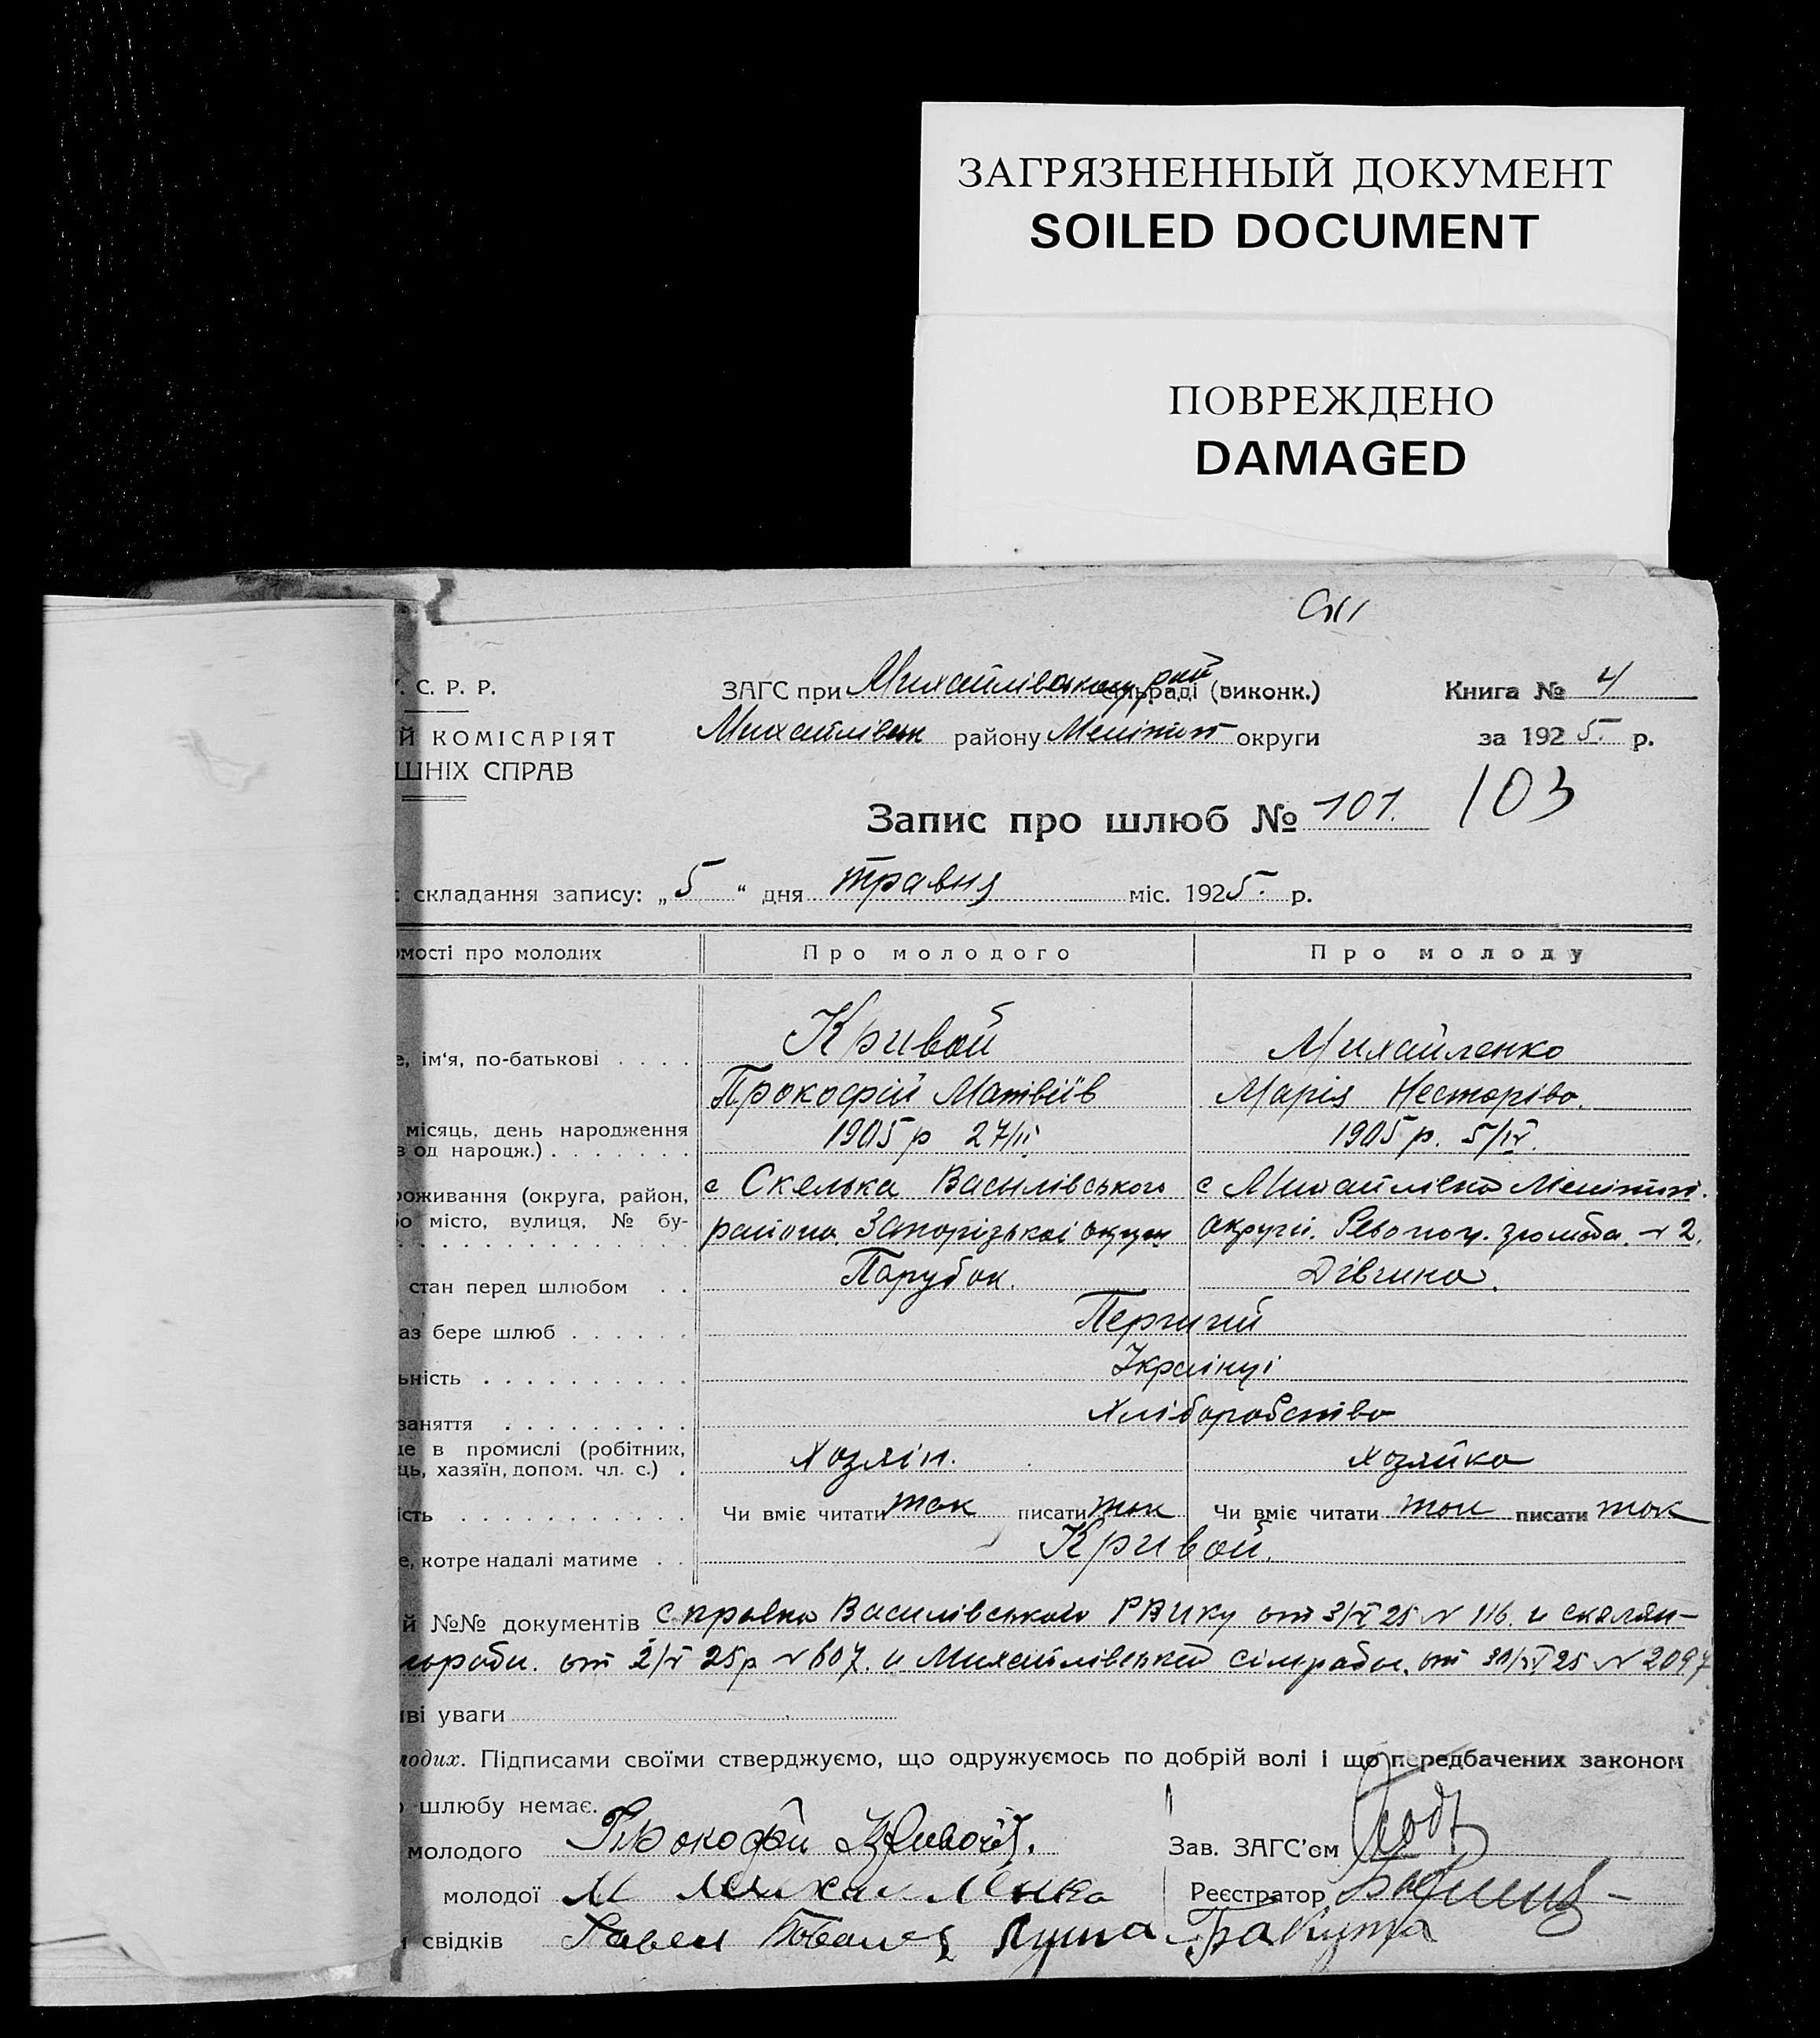 ЗАГРЯЗНЕННЫЙ ДОКУМЕНТ
SOILED DOCUMENT
ПОВРЕЖДЕНО
DAMAGED
С. Р. Р.
ЗАГС при Михайлівському рай сільраді (виконк.)
Книга № 4
Й КОМІСАРІЯТ
Михайлівськ району Мелітоп округи
за 1925. р.
ШНІХ СПРАВ
Запис про шлюб № 101. 103
складання запису: „5“ дня травня міс. 1925. р.
омості про молодих
Про молодого
Про молоду
е, ім‘я, по-батькові . . . .
Кривой
Михайленко
Прокофій Матвіїв
Марія Несторівн.
місяць, день народження
в од народж.) . . . . . . .
1905 р 27/II
1905 р. 5/IV.
роживання (округа, район,
с Скелька Василівського
с Михайлівка Мелітоп.
бо місто, вулиця, № бу-
района Запорізької округи
округи. громада. № 2.
стан перед шлюбом . .
Парубок.
Дівчина.
аз бере шлюб . . . . . .
Перший
ьність . . . . . . . . . .
Українці
заняття . . . . . . . . .
Хліборобство
це в промислі (робітник,
ць, хазяїн, допом. чл. с.) .
Хозяін.
Хозяйка
ість . . . . . . . . . . .
Чи вміє читати так писати так
Чи вміє читати так писати так
е, котре надалі матиме . .
Кривой.
й №№ документів справка Василівського РВИКу от 3/V 25 № 116. и скелян-
от 2/V 25р № 607. и Михайлівської сільради. от 25 № 2097
иві уваги
лодих. Підписами своїми стверджуємо, що одружуємось по добрій волі і що передбачених законом
о шлюбу немає.
молодого Прокофій Кривой.
Зав. ЗАГС’ом
молодої М Михайленка
Реєстратор
и свідків Павел